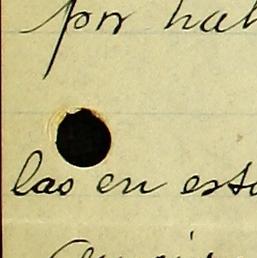 por hal
las en est